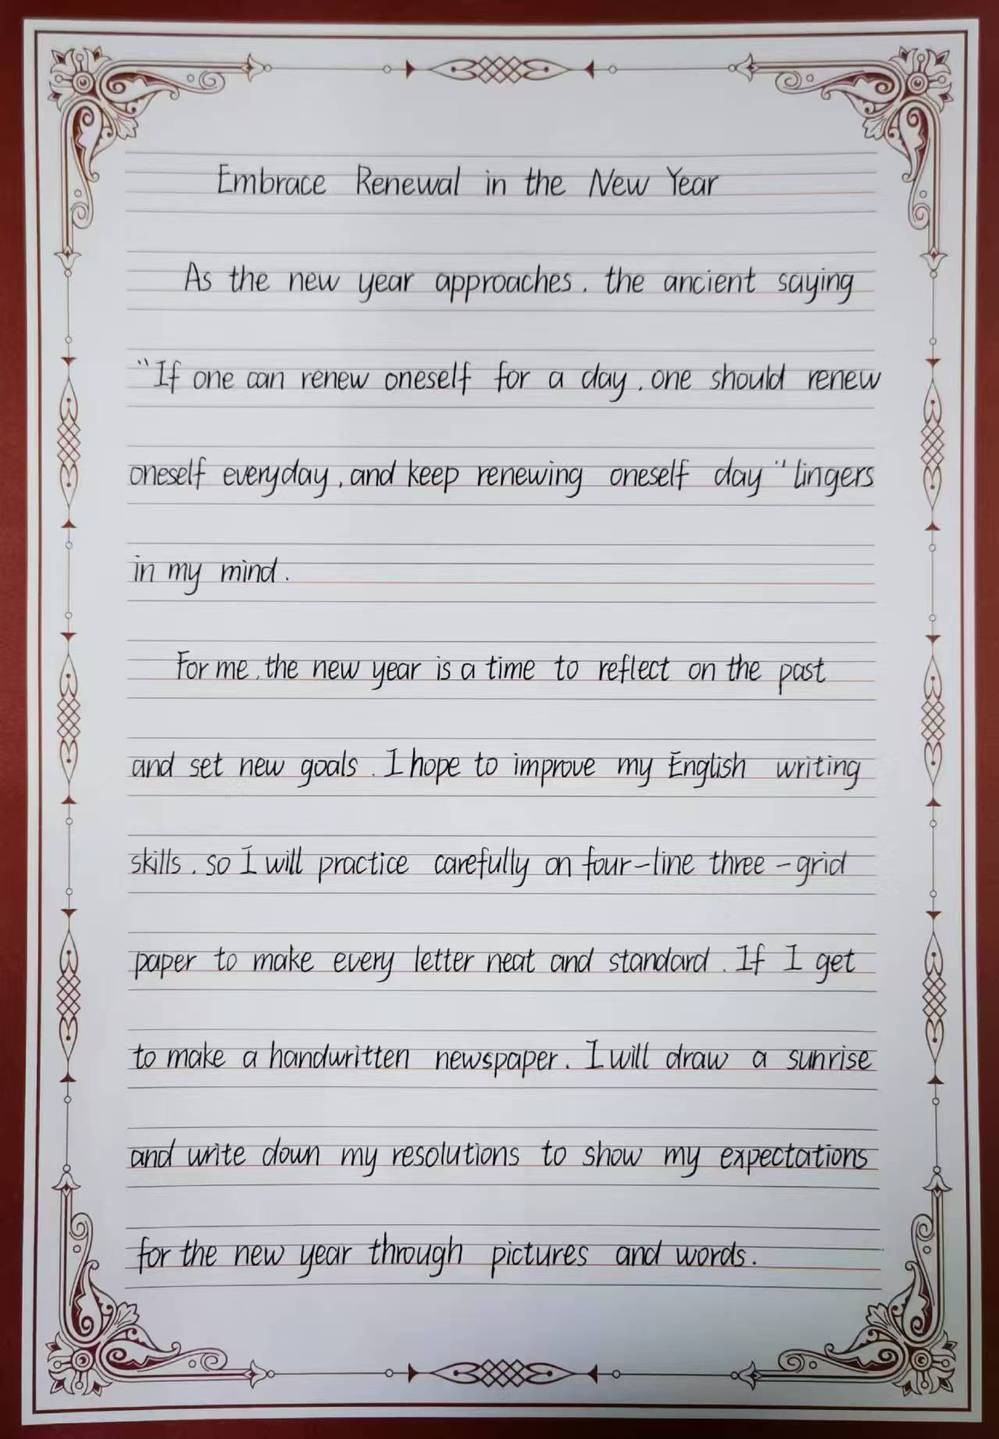 Embrace Renewal in the New Year
As the new year approaches, the ancient saying
"If one can renew oneself for a day, one should renew
oneself everyday, and keep renewing oneself day" lingers
in my mind.
For me, the new year is a time to reflect on the past
and set new goals. I hope to improve my English writing
skills, so I will practice carefully on four-line three-grid
paper to make every letter neat and standard. If I get
to make a handwritten newspaper. I will draw a sunrise
and write down my resolutions to show my expectations
for the new year through pictures and words.